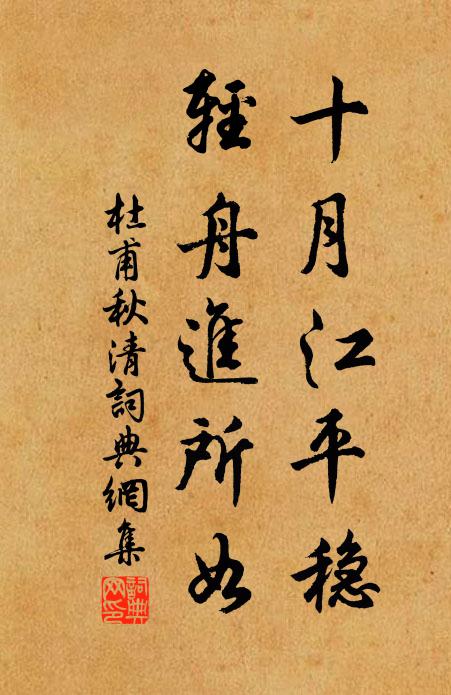 十月江平穏
輕舟進所如
杜甫秋清詞典網集
詞典
网印